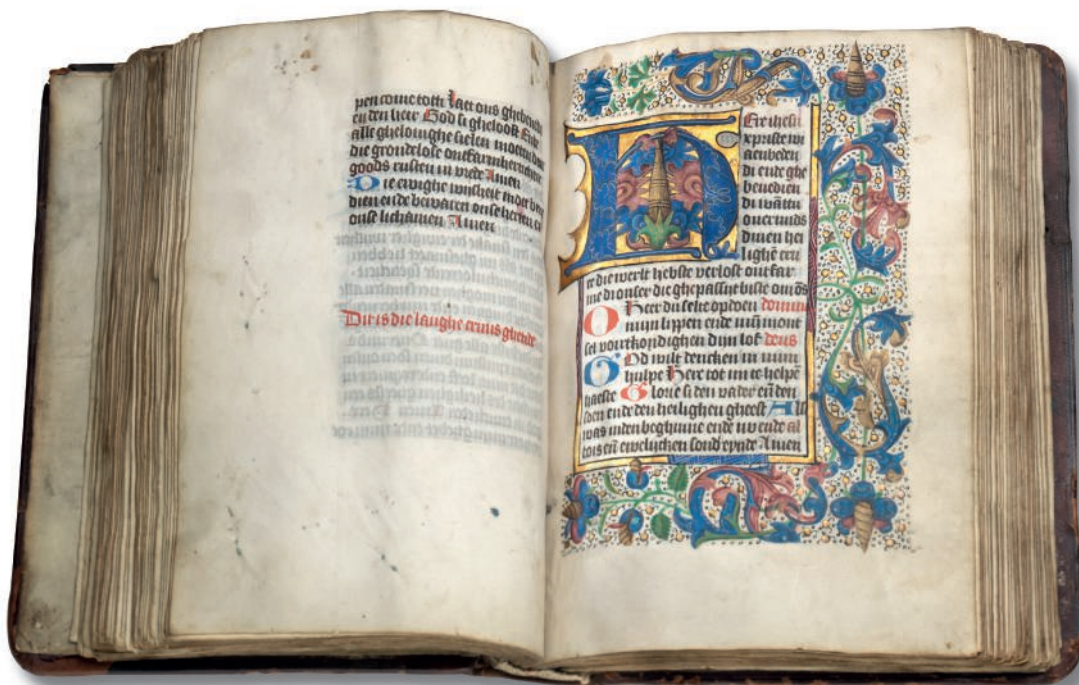 pen come toth Latt ons ghebenedi
en den heer God si ghelooft Ende
alle gheloinghe sielen moeten doer
die grondelose ontfarmherticheit
goods rusten in vrede Amen
Die ewighe wisheit moet bene
dien ende bewaren onse herten en
onse lichamen Amen
Dit is die langhe cruus ghetide
Here ihesu
xpriste wi
aenbeden
di ende ghe
benedien
di wāttu
ouermids
dinen hei
lighē cru
ce die werlt hebste verlost ontfar
me di onser die ghepassijt biste om ōs
O Heer du selte opdoen domine
mijn lippen ende mijn mont
sel voertkondighen dijn lof deus
God wilt dencken in mijn
hulpe Here tot mi te helpē
haeste Glorie si den vader eñ den
soen ende den heilighen gheest Als
was inden beghinne ende nv ende al
tois eñ ewelicken sond eynde Amen